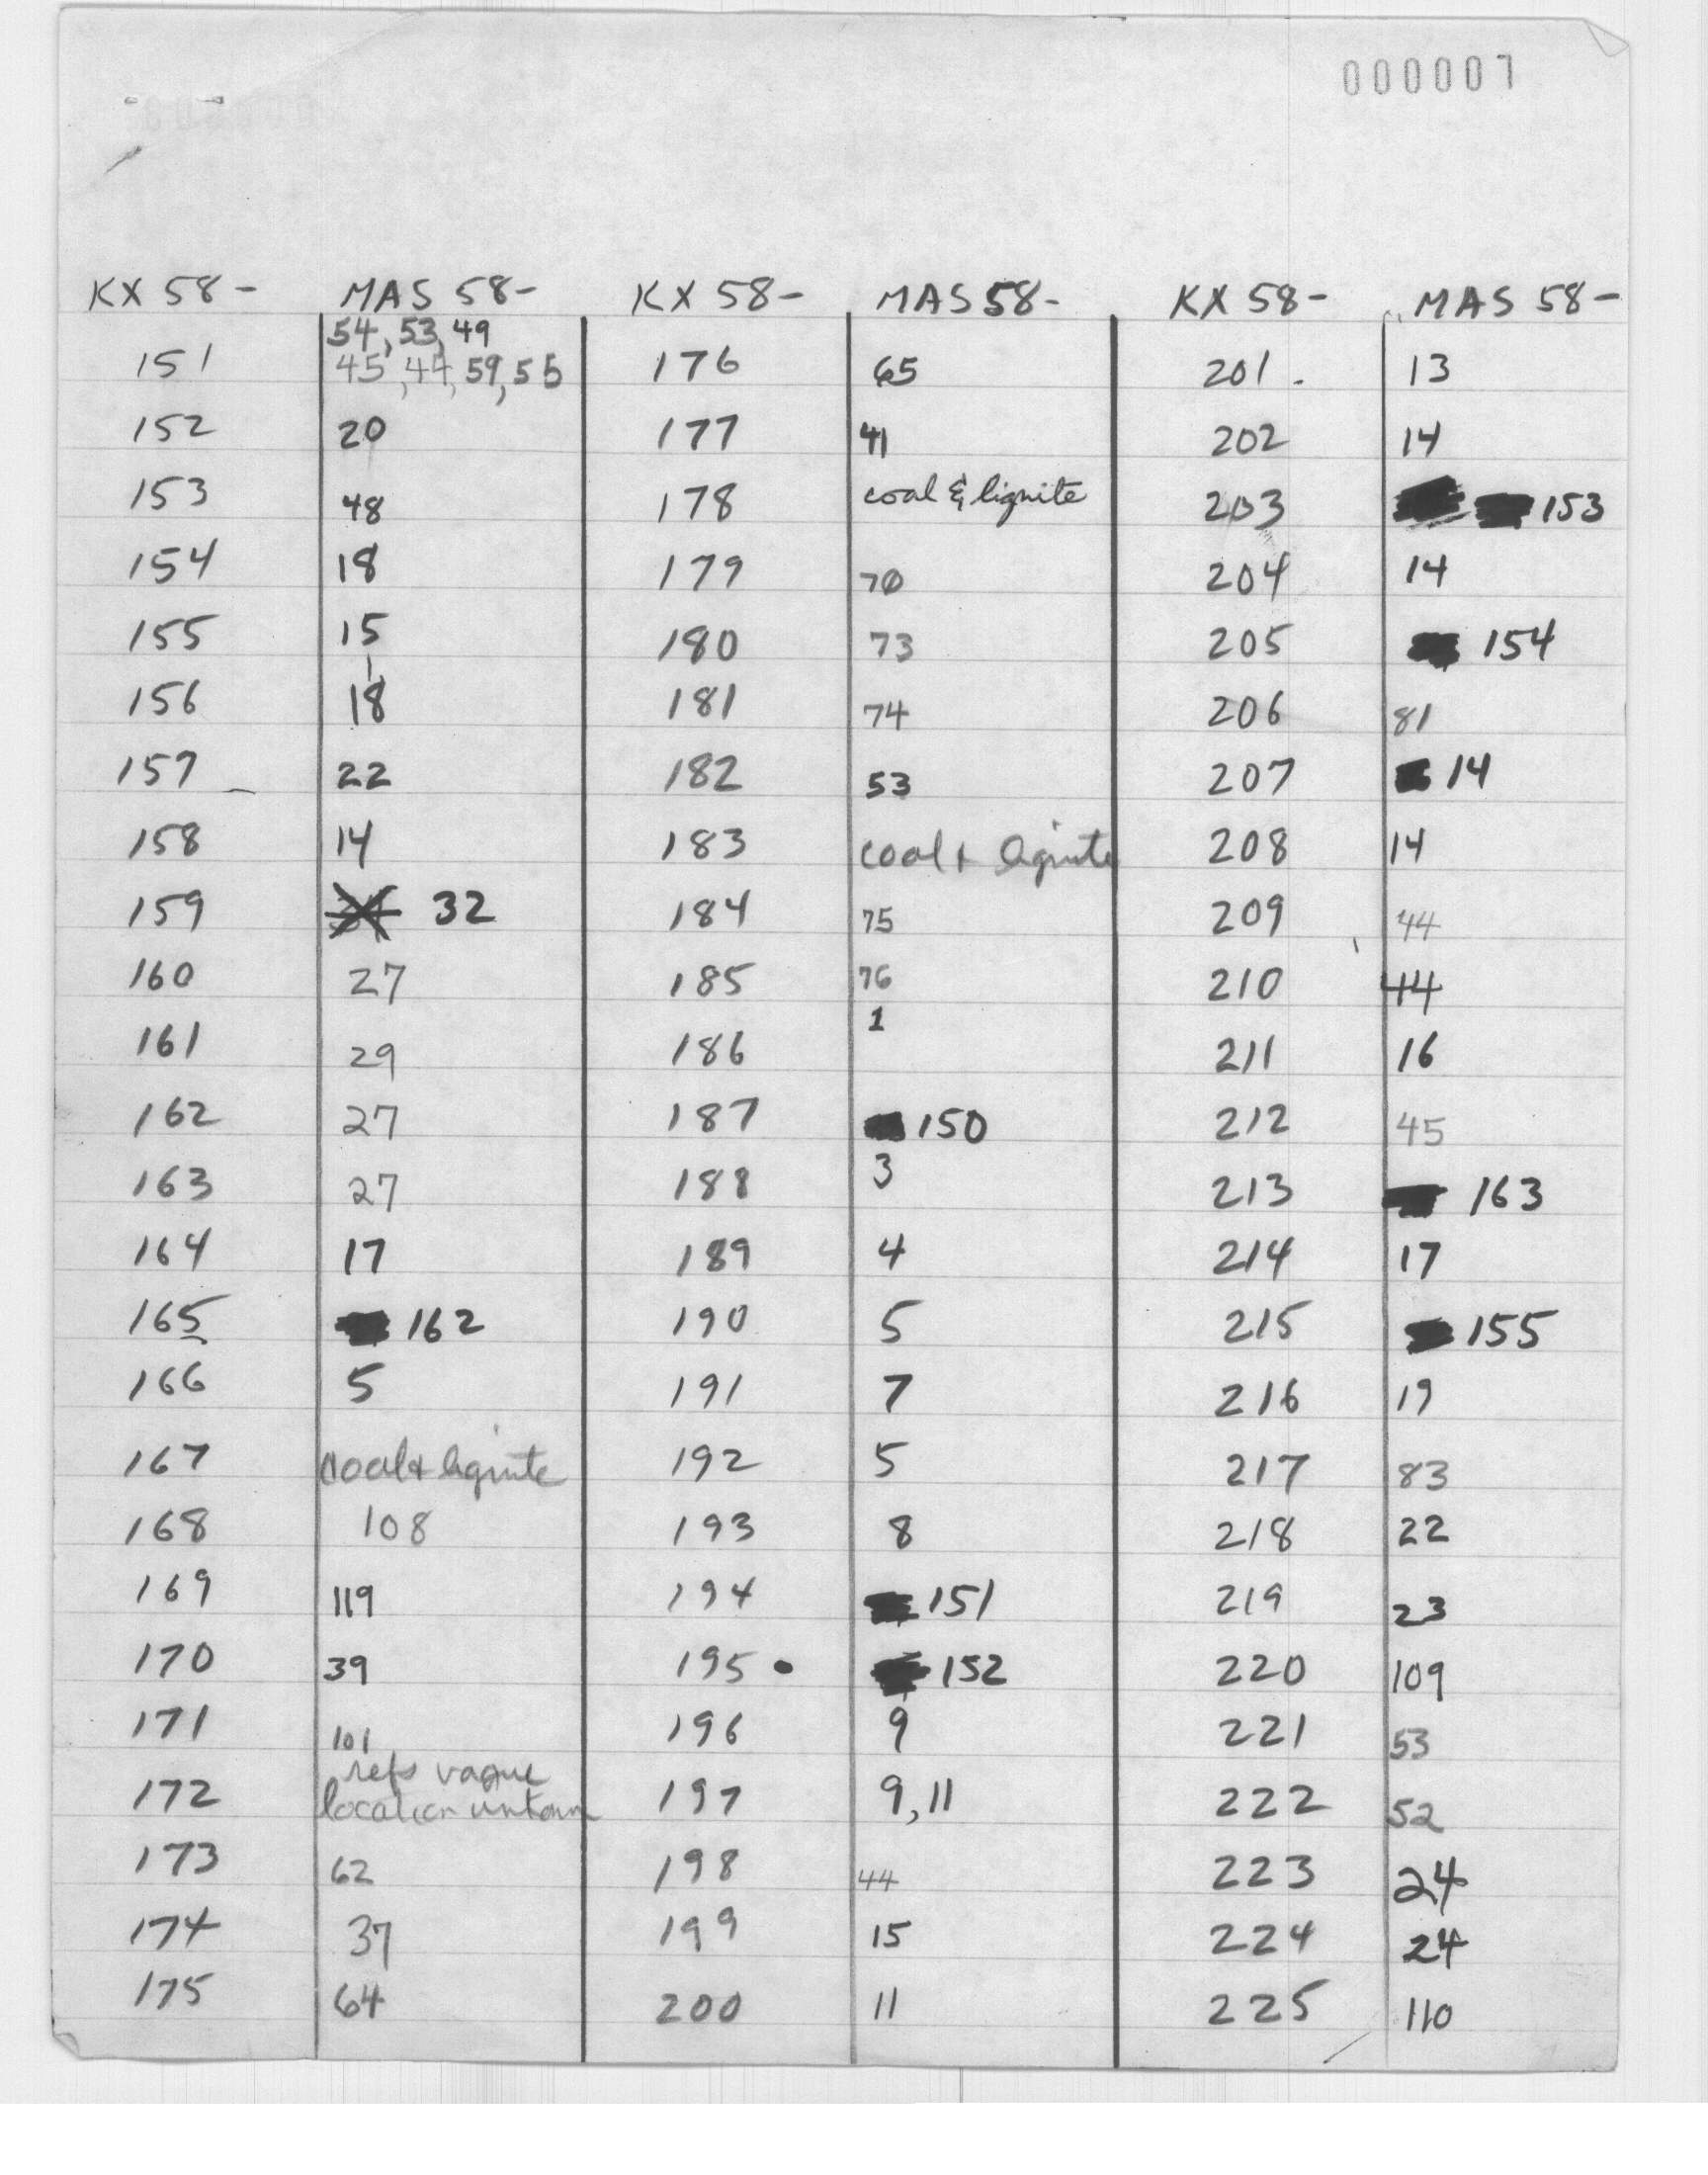 000007
KX 58- MAS 58- KX 58- MAS 58- KX 58- MAS 58-
54, 53, 49
151 45, 44, 59, 55 176 65 201. 13
152 20 177 41 202 14
153 48 178 coal & lignite 203 153
154 18 179 70 204 14
155 15 180 73 205 154
156 18 181 74 206 81
157 22 182 53 207 14
158 14 183 coal + lignite 208 14
159 32 184 75 209 44
160 27 185 76 210 44
161 29 186 1 211 16
162 27 187 150 212 45
163 27 188 3 213 163
164 17 189 4 214 17
165 162 190 5 215 155
166 5 191 7 216 19
167 coal + lignite 192 5 217 83
168 108 193 8 218 22
169 119 194 151 219 23
170 39 195 152 220 109
171 101 196 9 221 53
refs vague
172 location unkown 197 9, 11 222 52
173 62 198 44 223 24
174 37 199 15 224 24
175 64 200 11 225 110